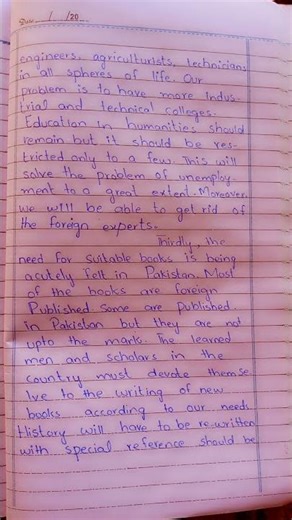 Date___/___/20___
engineers, agriculturists, technicians
in all spheres of life. Our
problem is to have more Indus-
trial and technical colleges.
Education in humanities should
remain but it should be res-
tricted only to a few. This will
solve the problem of unemploy-
ment to a great extent. Moreover
we will be able to get rid of
the foreign experts.
Thirdly, the
need for suitable books is being
acutely felt in Pakistan. Most
of the books are foreign
Published some are published
in Pakistan but they are not
upto the mark. The learned
men and scholars in the
country must devote themse
lve to the writing of new
books according to our needs.
History will have to be re-written
with special reference should be